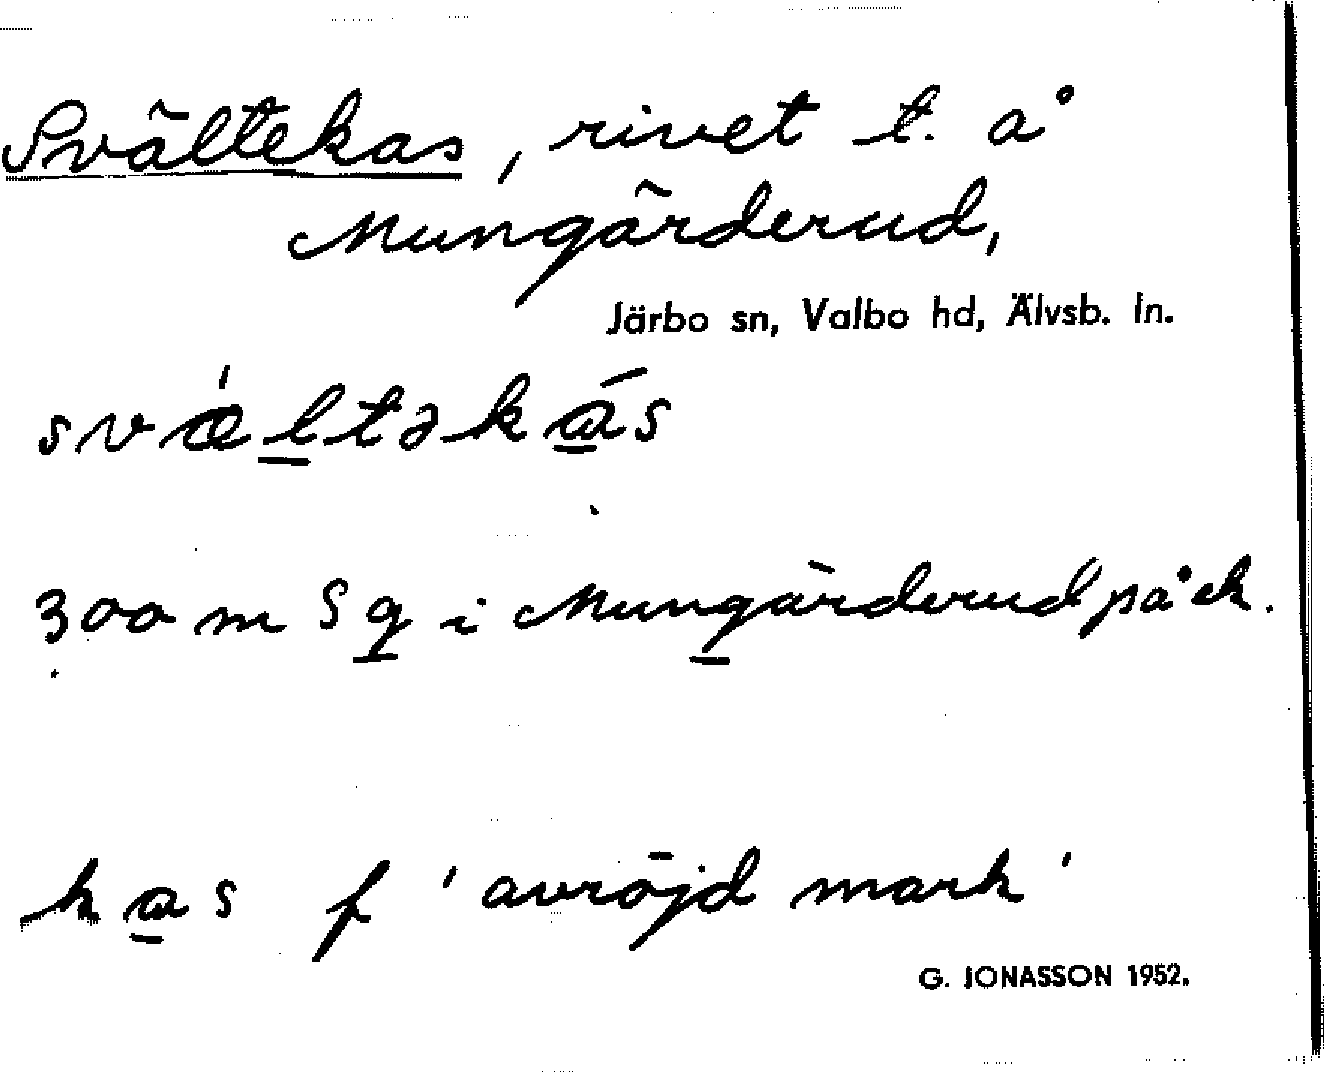 Svältekas, rivet t. å
Mungärderud,
Järbo sn, Valbo hd, Älvsb. ln.
svæ̍ltəka̲s
300 m S g i Mungärderud på ek.
kas f 'avröjd mark'
G. JONASSON 1952.